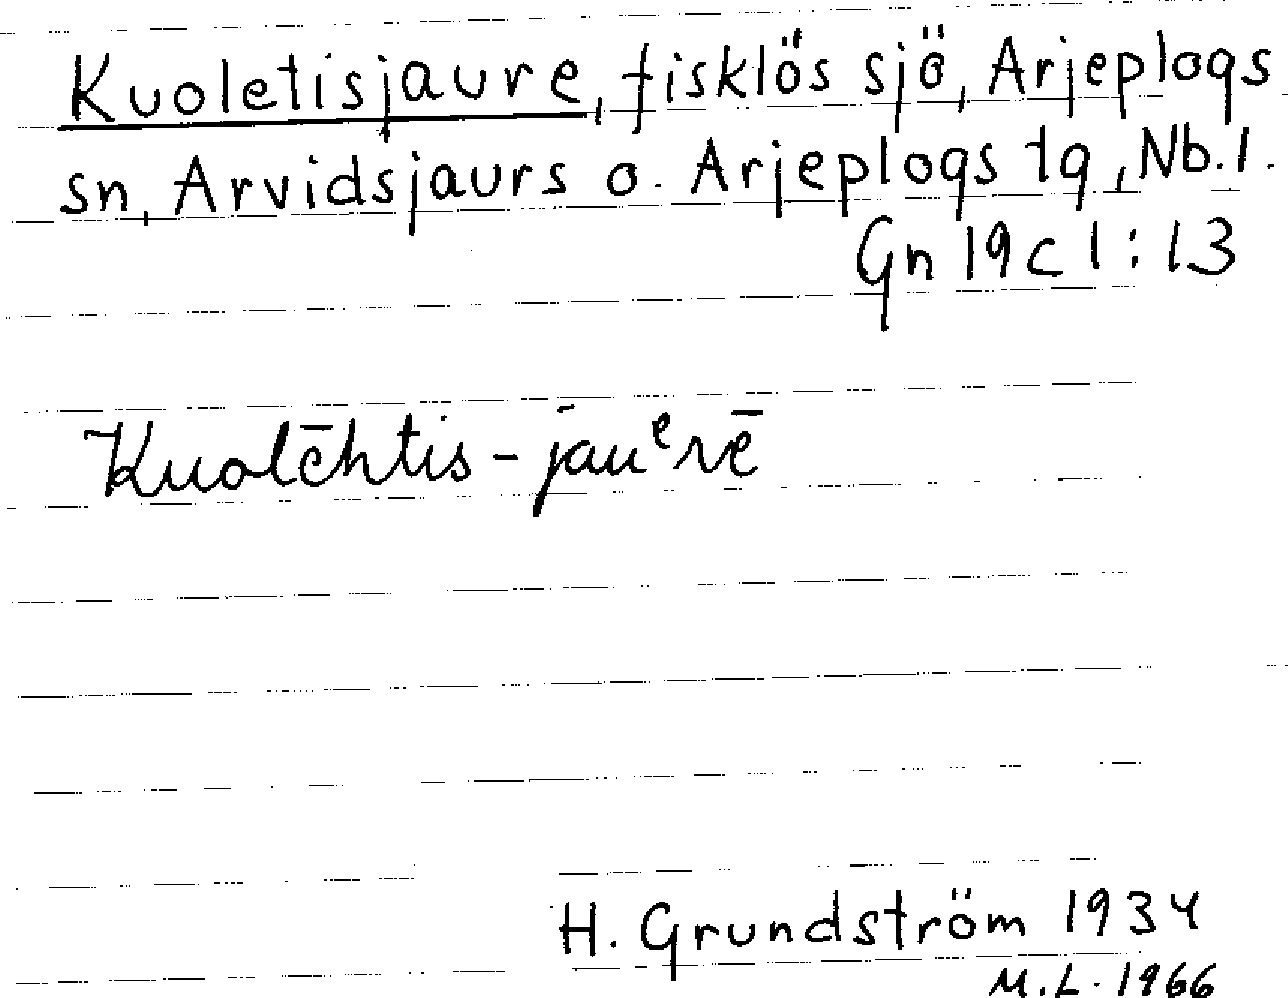 Kuoletisjaure, fisklös sjö, Arjeplogs
sn, Arvidsjaurs o. Arjeplogs tg, Nb.l.
Gn 19c 1:13
Kuolēhtis-jauᵉrē
H. Grundström 1934
M.L. 1966